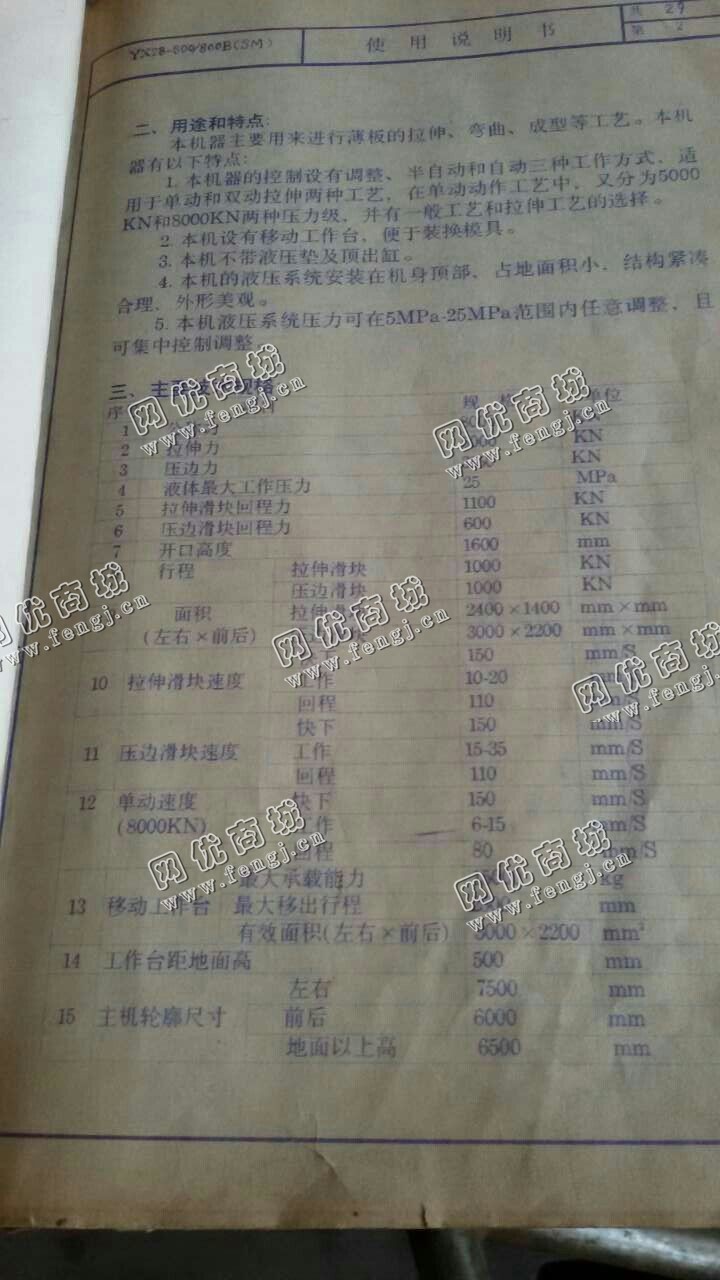 YX28-500/800B(SM)
使用说明书
共 29
第 2
二、用途和特点:
本机器主要用来进行薄板的拉伸、弯曲、成型等工艺。本机
器有以下特点:
1. 本机器的控制设有调整、半自动和自动三种工作方式，适
用于单动和双动拉伸两种工艺，在单动动作工艺中，又分为5000
KN和8000KN两种压力级，并有一般工艺和拉伸工艺的选择。
2. 本机设有移动工作台，便于装换模具。
3. 本机不带液压垫及顶出缸。
4. 本机的液压系统安装在机身顶部，占地面积小，结构紧凑
合理，外形美观。
5. 本机液压系统压力可在5MPa-25MPa范围内任意调整，且
可集中控制调整。
三、主 规格
序 规 单位
1
2 拉伸力 KN
3 压边力 KN
4 液体最大工作压力 25 MPa
5 拉伸滑块回程力 1100 KN
6 压边滑块回程力 600 KN
7 开口高度 1600 mm
行程 拉伸滑块 1000 KN
压边滑块 1000 KN
面积 拉伸滑 2400×1400 mm×mm
(左右×前后) 块 3000×2200 mm×mm
下 150 mm/S
10 拉伸滑块速度 工作 10-20
回程 110 m/S
快下 150
11 压边滑块速度 工作 15-35 mm/S
回程 110 mm/S
12 单动速度 快下 150 mm/S
(8000KN) 工作 6-15 mm/S
回程 80 mm/S
最大承载能力 kg
13 移动工作台 最大移出行程 mm
有效面积(左右×前后) 3000×2200 mm²
14 工作台距地面高 500 mm
左右 7500 mm
15 主机轮廓尺寸 前后 6000 mm
地面以上高 6500 mm
网优商城
www.fengj.cn
网优商城
www.fengj.cn
网优商城
www.fengj.cn
网优商城
www.fengj.cn
网优商城
www.fengj.cn
网优商城
www.fengj.cn
网优商城
www.fengj.cn